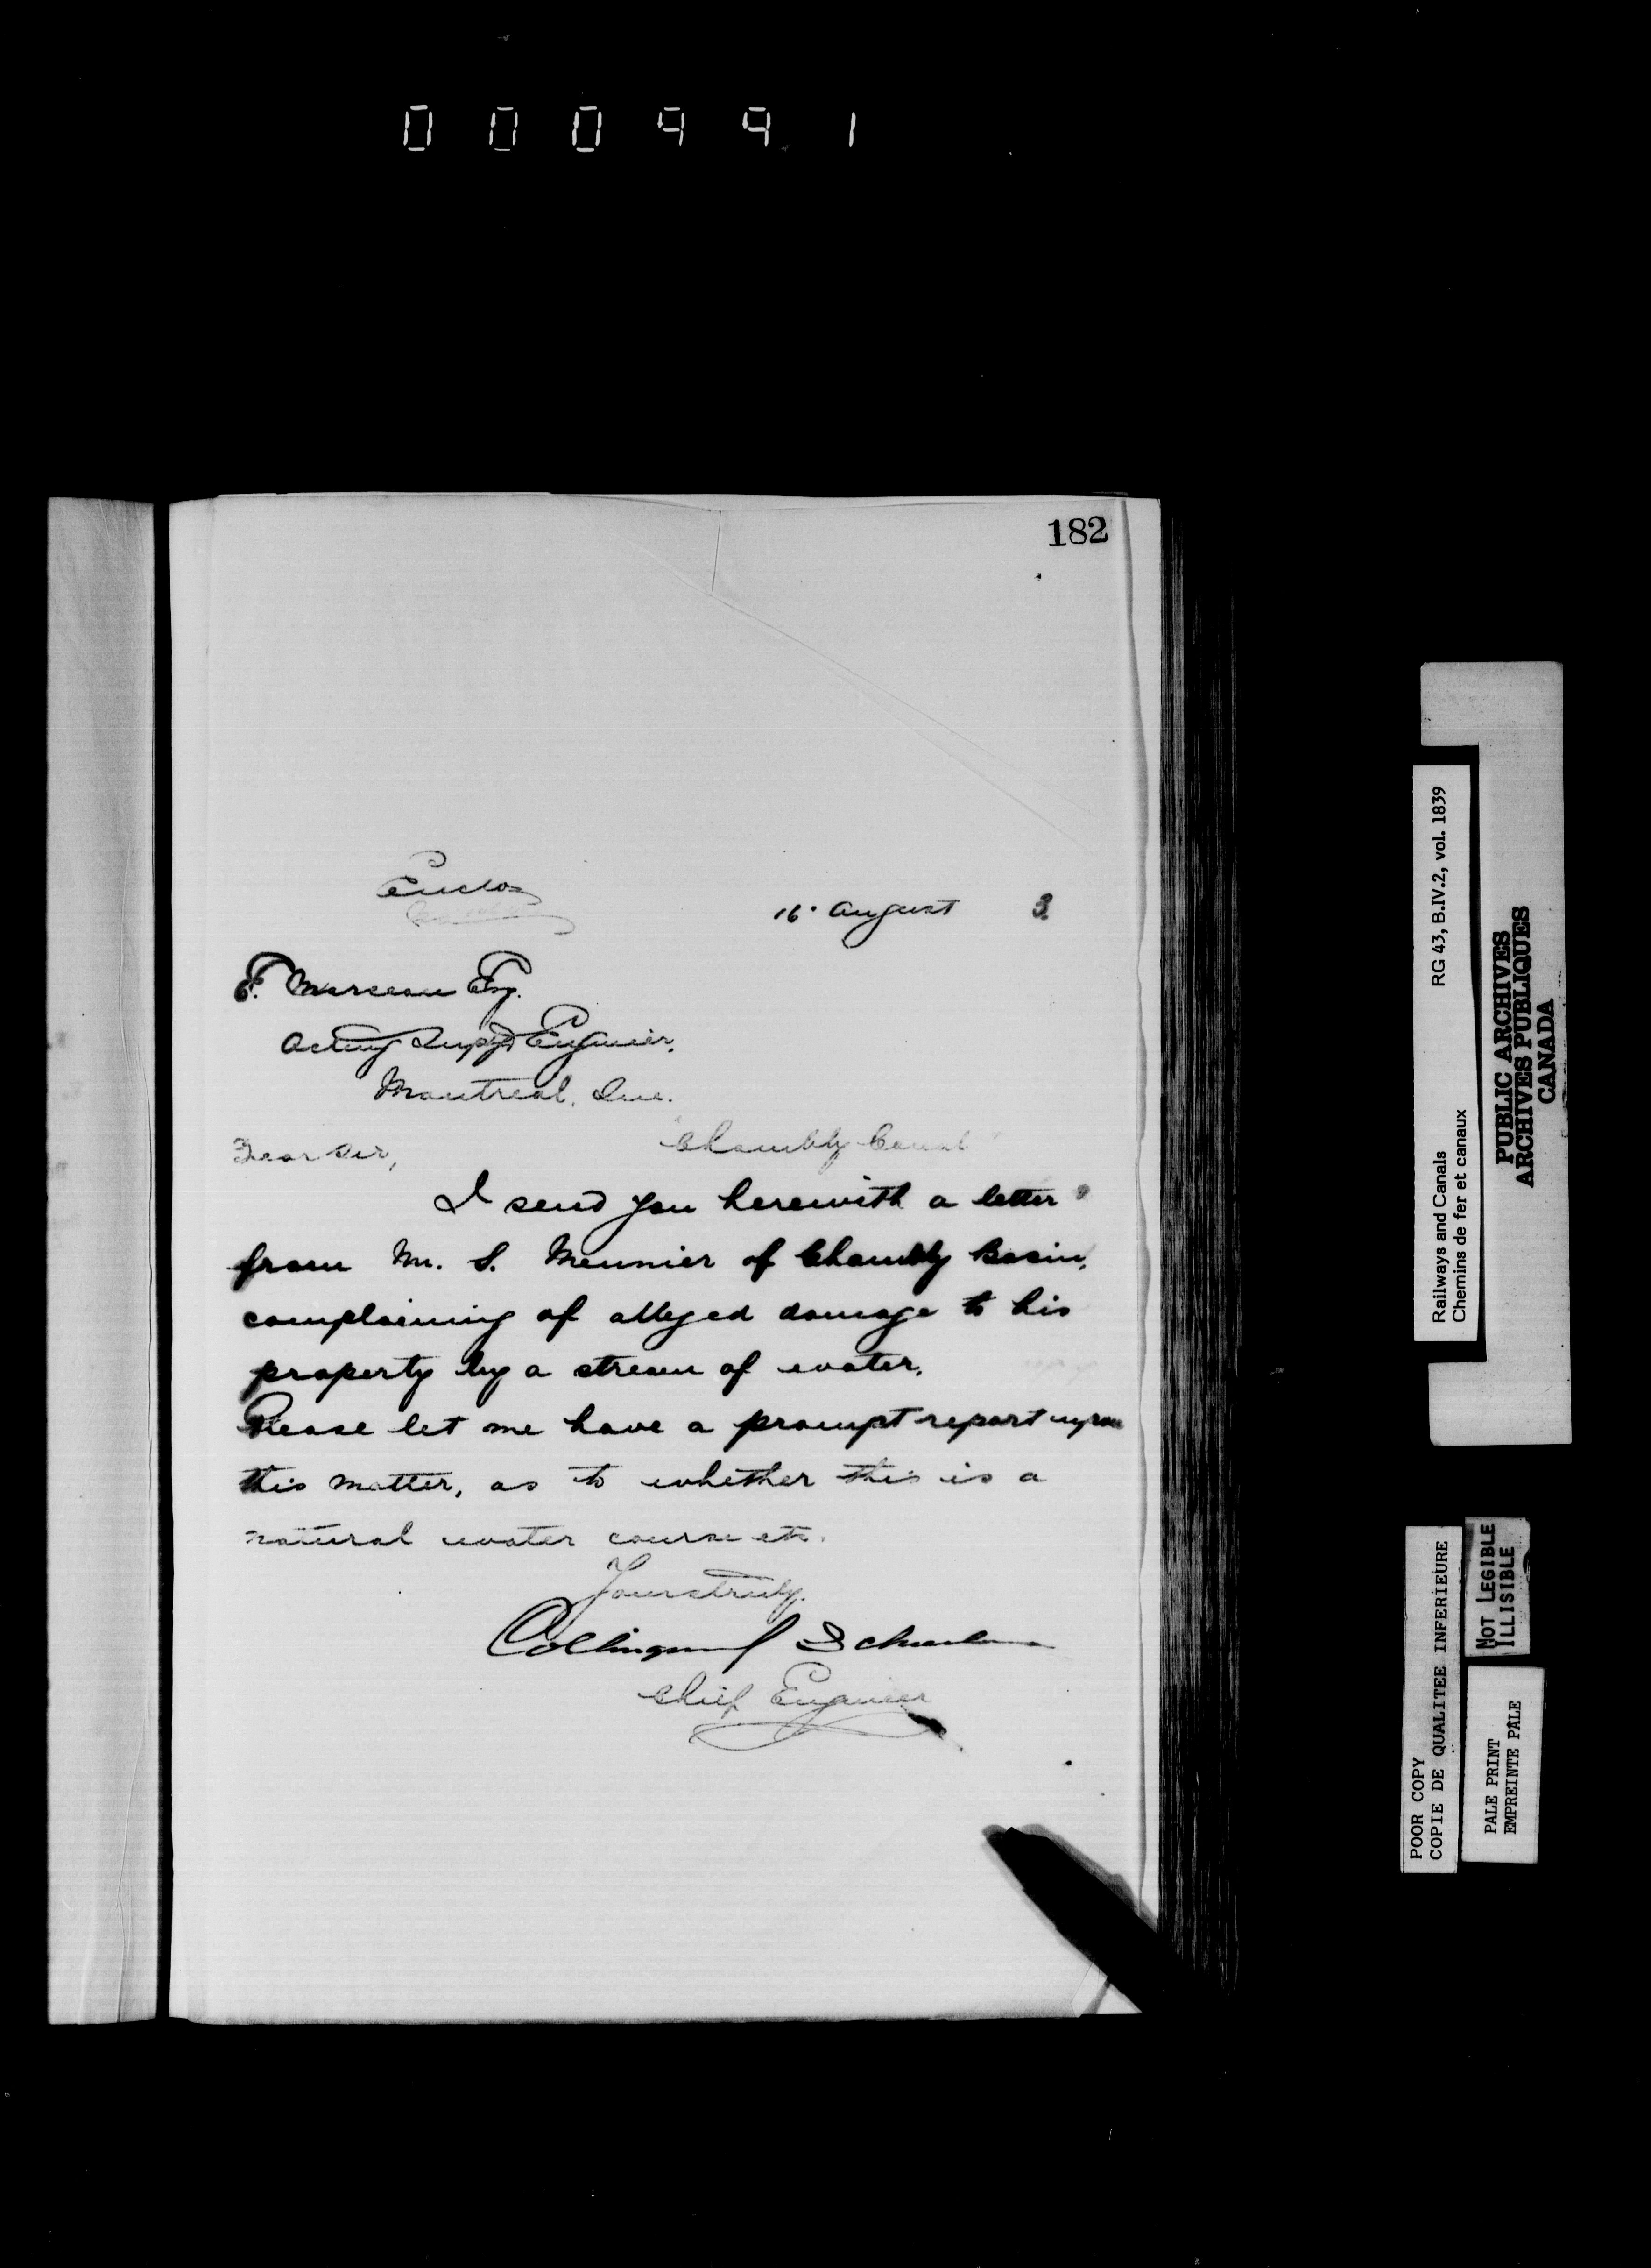 000991
182
Enclo
16. August 3.
E. Marceau Esq.
Acting Supt'g Engineer.
Montreal. Que.
Dear Sir, "Chambly Canal"
I send you herewith a letter
from Mr. S. Meunier of Chambly Basin,
complaining of alleged damage to his
property by a stream of water.
Please let me have a prompt report upon
this matter, as to whether this is a
natural water course etc.
Yours truly.
Collingwood Schreiber
Chief Engineer
Railways and Canals RG 43, B.IV.2, vol. 1839
Chemins de fer et canaux
PUBLIC ARCHIVES
ARCHIVES PUBLIQUES
CANADA
POOR COPY
COPIE DE QUALITEE INFERIEURE
NOT LEGIBLE
ILLISIBLE
PALE PRINT
EMPREINTE PÂLE